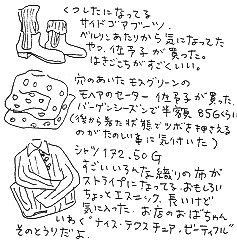 くつしたになってる
サイドゴアブーツ。
ベルリンあたりから気になってた
やつ。佐予子が買った。
はきごこちがすごくいい。
穴のあいたモスグリーンの
モヘアのセーター 佐予子が買った。
バーゲンシーズンで半額 85Gくらい
(後から着た状態でツボを押さえる
のがたのしい事に気付いた)
シャツ 172.50G
すごいいろんな織りの布が
ストライプになってる。おもしろい
ちょっとエスニック。長いけど
気に入った。お店のおばちゃん
いわく "ナイス・テクスチュア、ビューティフル"
そのとうりだよ。